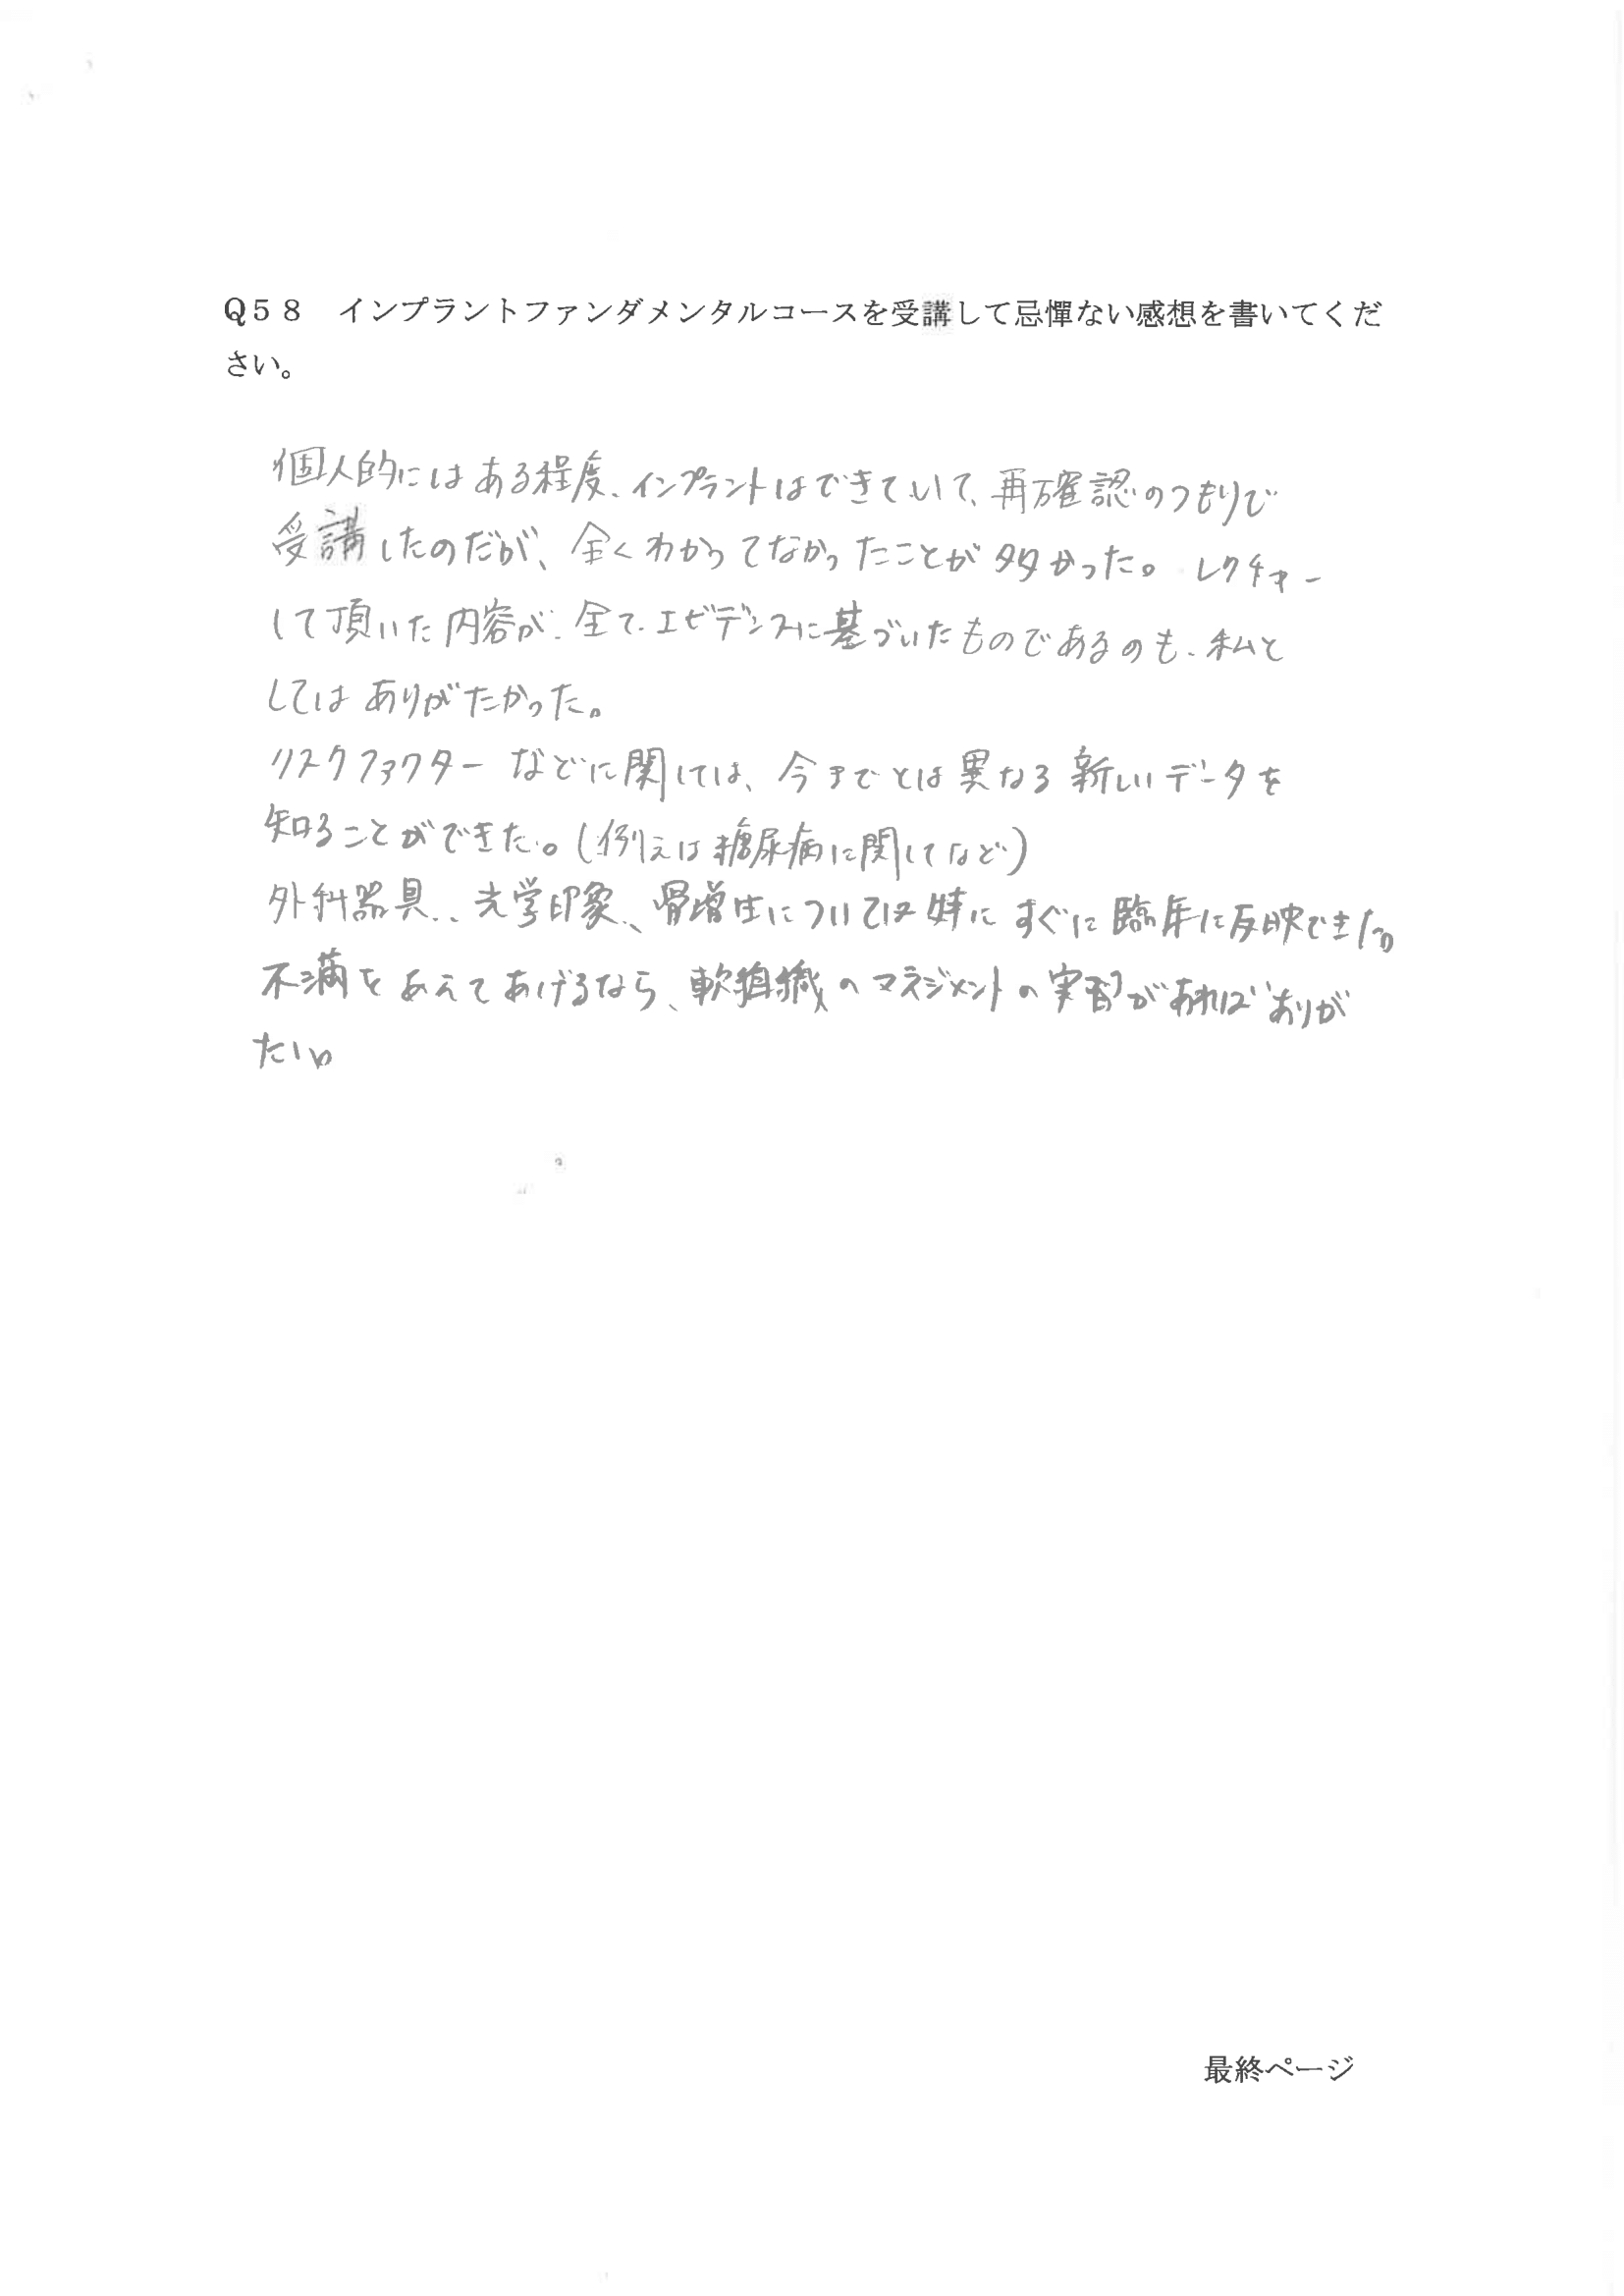 Q58 インプラントファンダメンタルコースを受講して忌憚ない感想を書いてくだ
さい。
個人的にはある程度、インプラントはできていて、再確認のつもりで
受講したのだが、全くわかってなかったことが多かった。レクチャー
して頂いた内容が、全て、エビデンスに基づいたものであるのも、私と
してはありがたかった。
リスクファクターなどに関しては、今までとは異なる新しいデータを
知ることができた。(例えば糖尿病に関してなど)
外科器具、光学印象、骨増生については特にすぐに臨床に反映できた。
不満をあえてあげるなら、軟組織のマネジメントの実習があればありが
たい。
最終ページ